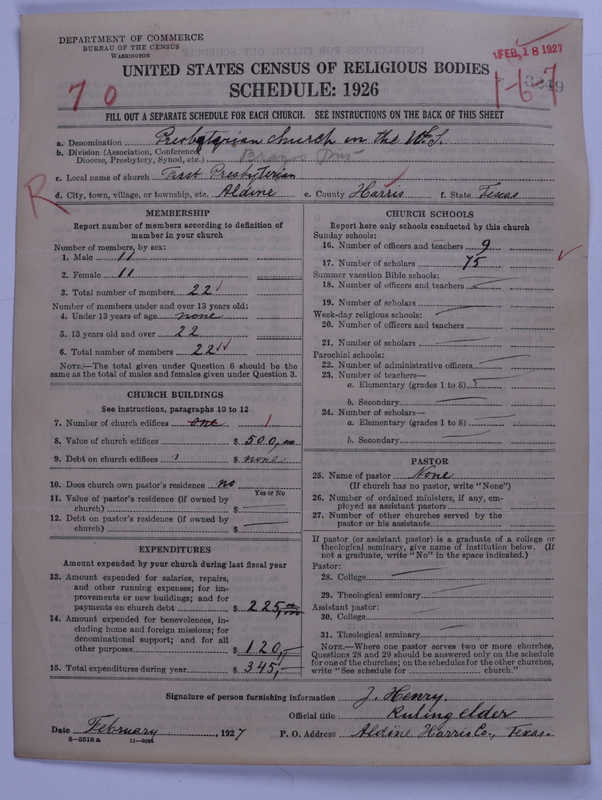 DEPARTMENT OF COMMERCE
BUREAU OF THE CENSUS
WASHINGTON
FEB 18 1927
UNITED STATES CENSUS OF RELIGIOUS BODIES
SCHEDULE: 1926
7 0
1-6-7
FILL OUT A SEPARATE SCHEDULE FOR EACH CHURCH. SEE INSTRUCTIONS ON THE BACK OF THIS SHEET
a. Denomination Presbyterian Church in the U.S.
b. Division (Association, Conference, Diocese, Presbytery, Synod, etc.) Brazos
c. Local name of church First Presbyterian
R
d. City, town, village, or township, etc. Aldine e. County Harris f. State Texas
MEMBERSHIP
Report number of members according to definition of
member in your church
Number of members, by sex:
1. Male 11
2. Female 11
3. Total number of members 22
Number of members under and over 13 years old:
4. Under 13 years of age none
5. 13 years old and over 22
6. Total number of members 22
NOTE.—The total given under Question 6 should be
same as the total of males and females given under Question 3.
CHURCH BUILDINGS
See instructions, paragraphs 10 to 12
7. Number of church edifices one 1
8. Value of church edifices $ 500,00
9. Debt on church edifices $ none
10. Does church own pastor's residence no
Yes or No
11. Value of pastor's residence (if owned by
church) $
12. Debt on pastor's residence (if owned by
church) $
EXPENDITURES
Amount expended by your church during last fiscal year
13. Amount expended for salaries, repairs,
and other running expenses; for im-
provements or new buildings; and for
payments on church debt $ 225,00
14. Amount expended for benevolences, in-
cluding home and foreign missions; for
denominational support; and for all
other purposes $ 120,-
15. Total expenditures during year $ 345,-
CHURCH SCHOOLS
Report here only schools conducted by this church
Sunday schools:
16. Number of officers and teachers 9
17. Number of scholars 75
Summer vacation Bible schools:
18. Number of officers and teachers
19. Number of scholars
Week-day religious schools:
20. Number of officers and teachers
21. Number of scholars
Parochial schools:
22. Number of administrative officers
23. Number of teachers—
a. Elementary (grades 1 to 8)
b. Secondary
24. Number of scholars—
a. Elementary (grades 1 to 8)
b. Secondary
PASTOR
25. Name of pastor None
(If church has no pastor, write "None")
26. Number of ordained ministers, if any, em-
ployed as assistant pastors
27. Number of other churches served by the
pastor or his assistants
If pastor (or assistant pastor) is a graduate of a college or
theological seminary, give name of institution below. (If
not a graduate, write "No" in the space indicated.)
Pastor:
28. College
29. Theological seminary
Assistant pastor:
30. College
31. Theological seminary
NOTE.—Where one pastor serves two or more churches,
Questions 28 and 29 should be answered only on the schedule
for one of the churches; on the schedules for the other churches,
write "See schedule for church."
Signature of person furnishing information J. Henry.
Official title Ruling elder
Date February, 1927 P. O. Address Aldine Harris Co., Texas.
8-5518a 11-9084